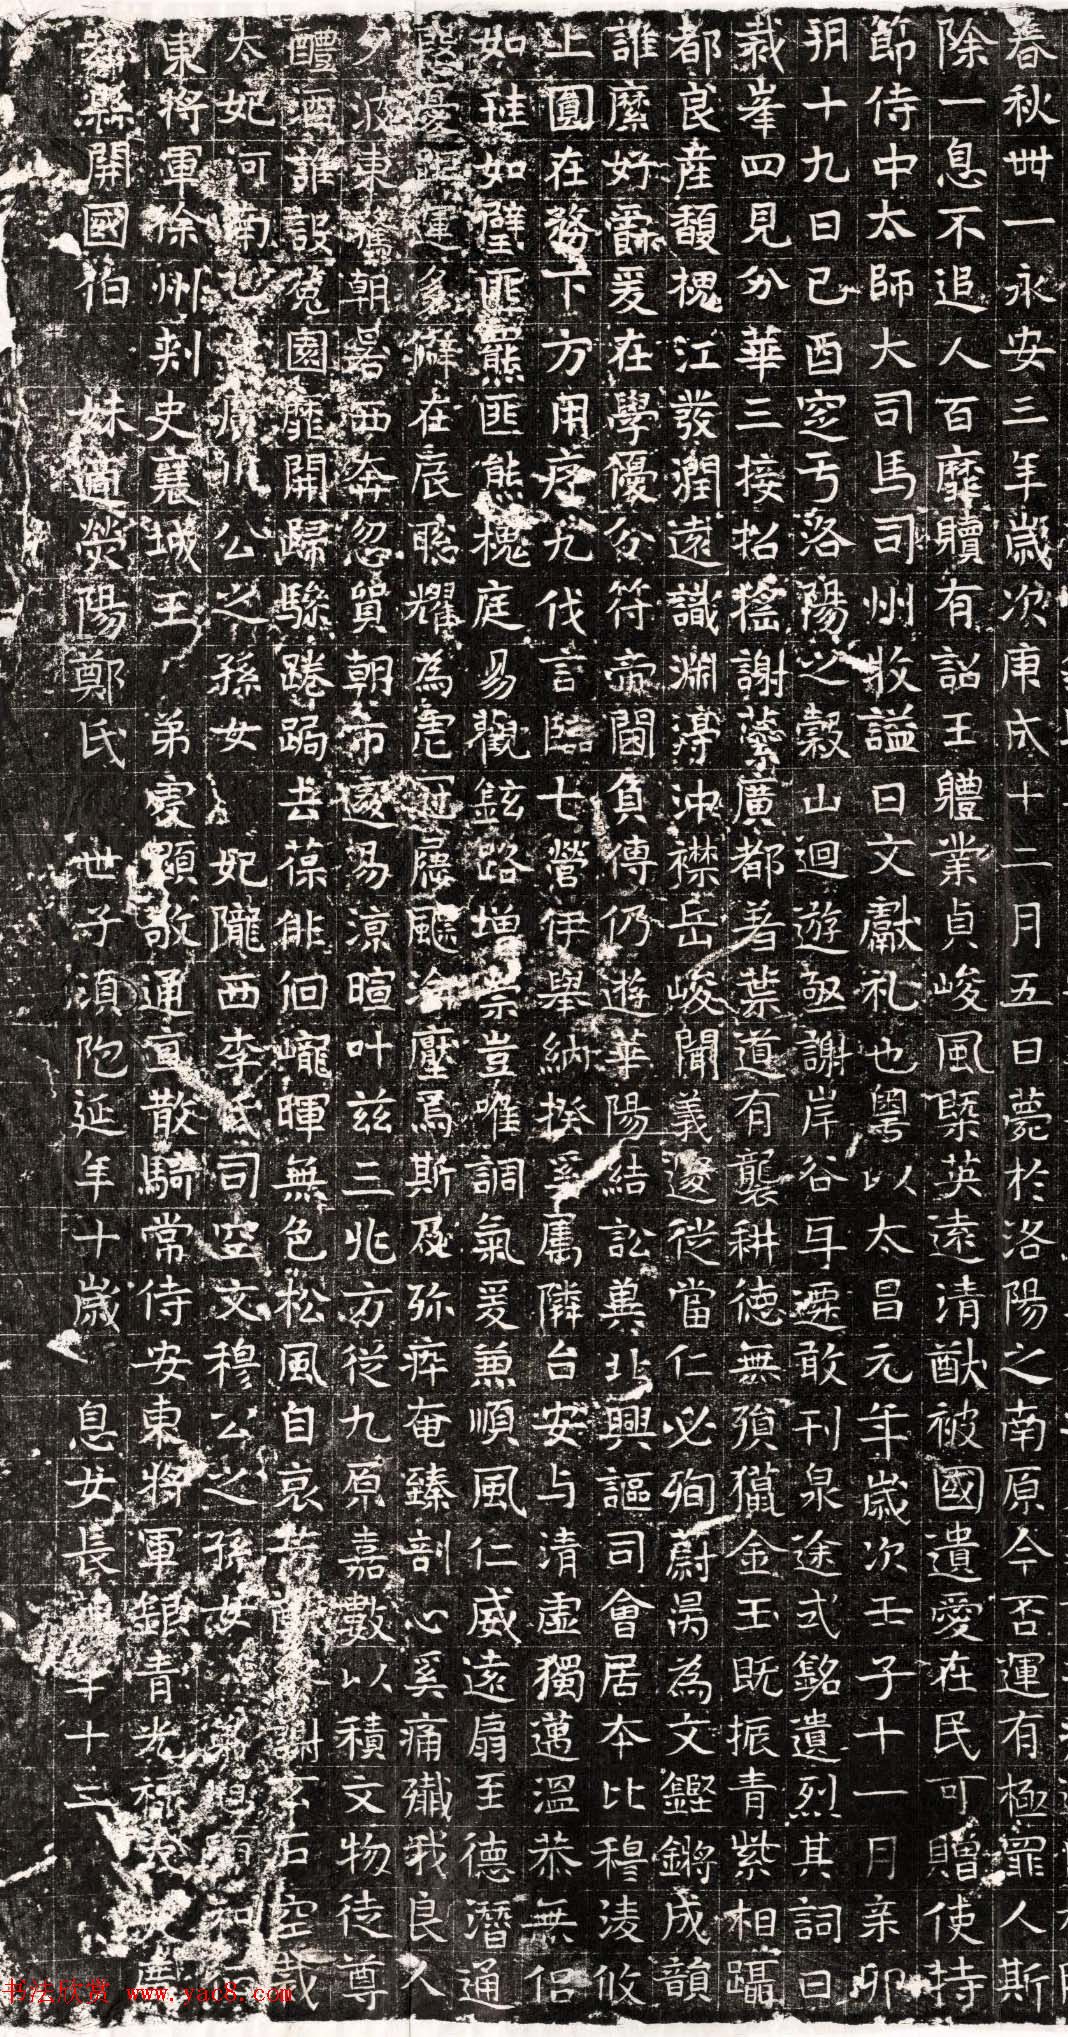 春秋卅一永安三年歲次庚戌十二月五日薨於洛陽之南原今否運有極罪人斯
除一息不追人百靡贖有詔王體業貞峻風槩英遠清猷被國遺愛在民可贈使持
節侍中太師大司馬司州牧謚曰文獻礼也粵以太昌元年歲次壬子十一月辛卯
朔十九日己酉窆于洛陽之穀山迴遊敬謝岸谷耳逕敢刊泉途式銘遺烈其詞曰
裁峯四見分華三接招摇謝蘂廣都著葉道有襲耕徳無殞獵金玉既振青紫相躡
都良産馥槐江發潤遠識淵渟沖襟岳峻聞義邃從當仁必殉蔚昺為文鏗鏘成韻
誰縻好爵爰在學優分符帝閫負傳仍遊華陽結訟冀北興謳司會居夲比穆淩攸
上圓在務下方用疗九伐言臨七營伊舉納揆爰属隣台安与清虛獨邁溫恭無侣
如珪如璧匪羆匪熊槐庭易觀鉉路増崇豈唯調氣爰兼順風仁威遠扇至德潛通
運多僻在扆聡耀為宼冠屨颷淪壓焉斯及殄瘁奄臻剖心奚痛殱我良人
夕波東驚朝晷西奔忽貿朝市遽易涼暄叶兹三兆方從九原嘉數以積文物徒尊
醴酒誰設菟園靡開歸驂踡跼去葆俳佪巄暉無色松風自哀 謝玄石空裁
太妃河南 公之孫女 妃隴西李氏司空文穆公之孫女
東將軍徐州刾史襄城王 弟 顯敬通直散騎常侍安東將軍銀青光祿大夫
縣開國伯 妹適滎陽鄭氏 世子須陁延年十歲 息女長 年十二
书法欣赏 www.yac8.com